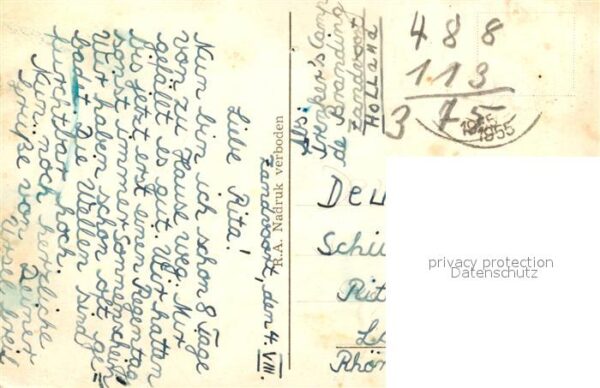 Zandvoort, den 4. VIII.
Liebe Rita!
Nun bin ich schon 8 Tage
von zu Hause weg. Mir
gefällt es gut. Wir hatten
bis jetzt erst einen Regentag
sonst immer Sonnenschein
Wir haben schon oft ge=
badet. Die Wellen sind
furchtbar hoch.
Nun noch herzliche
Grüße von Deiner
R.A. Nadruk verboden
Abs.
Camp
de Branding
Zandvoort
HOLLAND
488
113
375
1955
1955
Schü
Rit
Rhön
privacy protection
Datenschutz